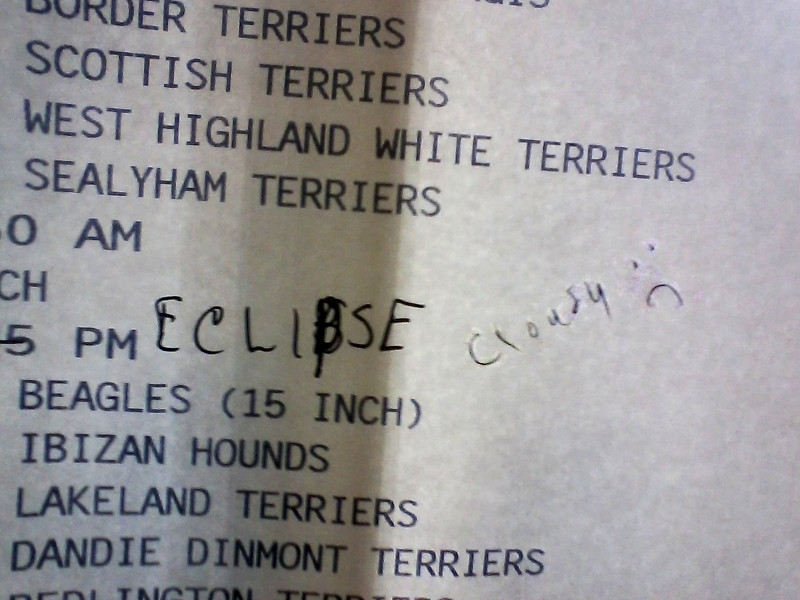 BORDER TERRIERS
SCOTTISH TERRIERS
WEST HIGHLAND WHITE TERRIERS
SEALYHAM TERRIERS
0 AM
CH
5 PM ECLIPSE cloudy :(
BEAGLES (15 INCH)
IBIZAN HOUNDS
LAKELAND TERRIERS
DANDIE DINMONT TERRIERS
BEDLINGTON TERRIERS